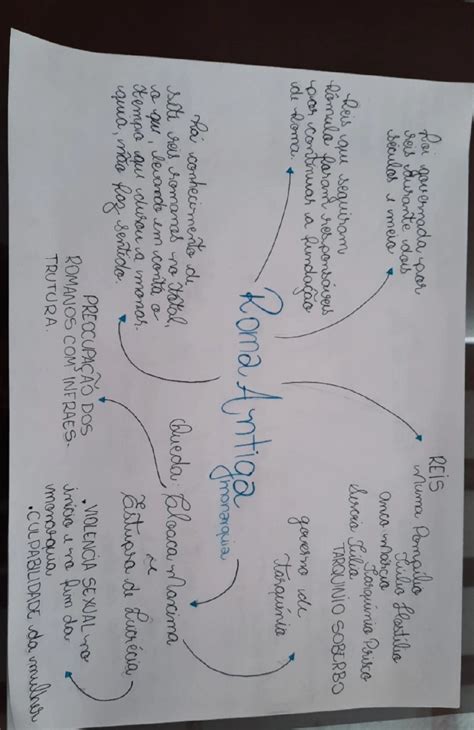 Roma Antiga
(monarquia)
Foi governada por
reis durante dois
séculos e meio
Reis que seguiram
Rômulo foram responsáveis
por continuar a fundação
de Roma.
Há conhecimento de
sete reis romanos no total,
o que, levando em conta o
tempo que durou a monar-
quia, não faz sentido.
REIS
Numa Pompílio
Tulio Hostílio
Anco Márcio
Tarquínio Prisco
Servio Tulio
TARQUINIO SOBERBO
governo de
Tarquínio
Queda: Cloaca Maxima
e
Estupro de Lucrécia
PREOCUPAÇÃO DOS
ROMANOS COM INFRAES-
TRUTURA.
. VIOLENCIA SEXUAL no
início e no fim da
monarquia
. CULPABILIDADE da mulher